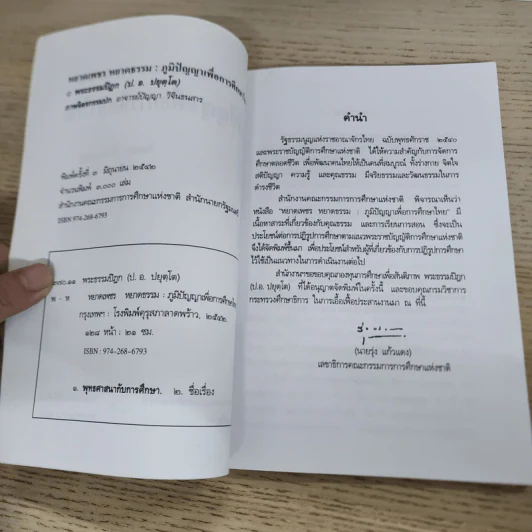 หยาดเพชร หยาดธรรม : ภูมิปัญญาเพื่อการศึกษา
© พระธรรมปิฎก (ป. อ. ปยุตฺโต)
ภาพจิตรกรรมปก อาจารย์ปัญญา วิจินธนสาร
พิมพ์ครั้งที่ ๓ มิถุนายน ๒๕๔๒
จำนวนพิมพ์ ๓,๐๐๐ เล่ม
สำนักงานคณะกรรมการการศึกษาแห่งชาติ สำนักนายกรัฐมนตรี
ISBN 974-268-6793
พระธรรมปิฎก (ป. อ. ปยุตฺโต)
พ - ห หยาดเพชร หยาดธรรม : ภูมิปัญญาเพื่อการศึกษาไทย
กรุงเทพฯ : โรงพิมพ์คุรุสภาลาดพร้าว, ๒๕๔๒.
๑๒๘ หน้า : ๒๑ ซม.
ISBN : 974-268-6793
๑. พุทธศาสนากับการศึกษา. ๒. ชื่อเรื่อง
คำนำ
รัฐธรรมนูญแห่งราชอาณาจักรไทย ฉบับพุทธศักราช ๒๕๔๐
และพระราชบัญญัติการศึกษาแห่งชาติ ได้ให้ความสำคัญกับการจัดการ
ศึกษาตลอดชีวิต เพื่อพัฒนาคนไทยให้เป็นคนที่สมบูรณ์ ทั้งร่างกาย จิตใจ
สติปัญญา ความรู้ และคุณธรรม มีจริยธรรมและวัฒนธรรมในการ
ดำรงชีวิต
สำนักงานคณะกรรมการการศึกษาแห่งชาติ พิจารณาเห็นว่า
หนังสือ "หยาดเพชร หยาดธรรม : ภูมิปัญญาเพื่อการศึกษาไทย" มี
เนื้อหาสาระที่เกี่ยวข้องกับคุณธรรม และการเรียนการสอน ซึ่งจะเป็น
ประโยชน์ต่อการปฏิรูปการศึกษาตามแนวพระราชบัญญัติการศึกษาแห่งชาติ
จึงได้จัดพิมพ์ขึ้นมา เพื่อประโยชน์สำหรับผู้ที่เกี่ยวข้องกับการปฏิรูปการศึกษา
ไว้ใช้เป็นแนวทางในการดำเนินงานต่อไป
สำนักงานฯขอขอบคุณกองทุนการศึกษาเพื่อสันติภาพ พระธรรมปิฎก
(ป.อ. ปยุตฺโต) ที่ได้อนุญาตจัดพิมพ์ในครั้งนี้ และขอบคุณกรมวิชาการ
กระทรวงศึกษาธิการ ในการเอื้อเฟื้อประสานงานมา ณ ที่นี้
(นายรุ่ง แก้วแดง)
เลขาธิการคณะกรรมการการศึกษาแห่งชาติ